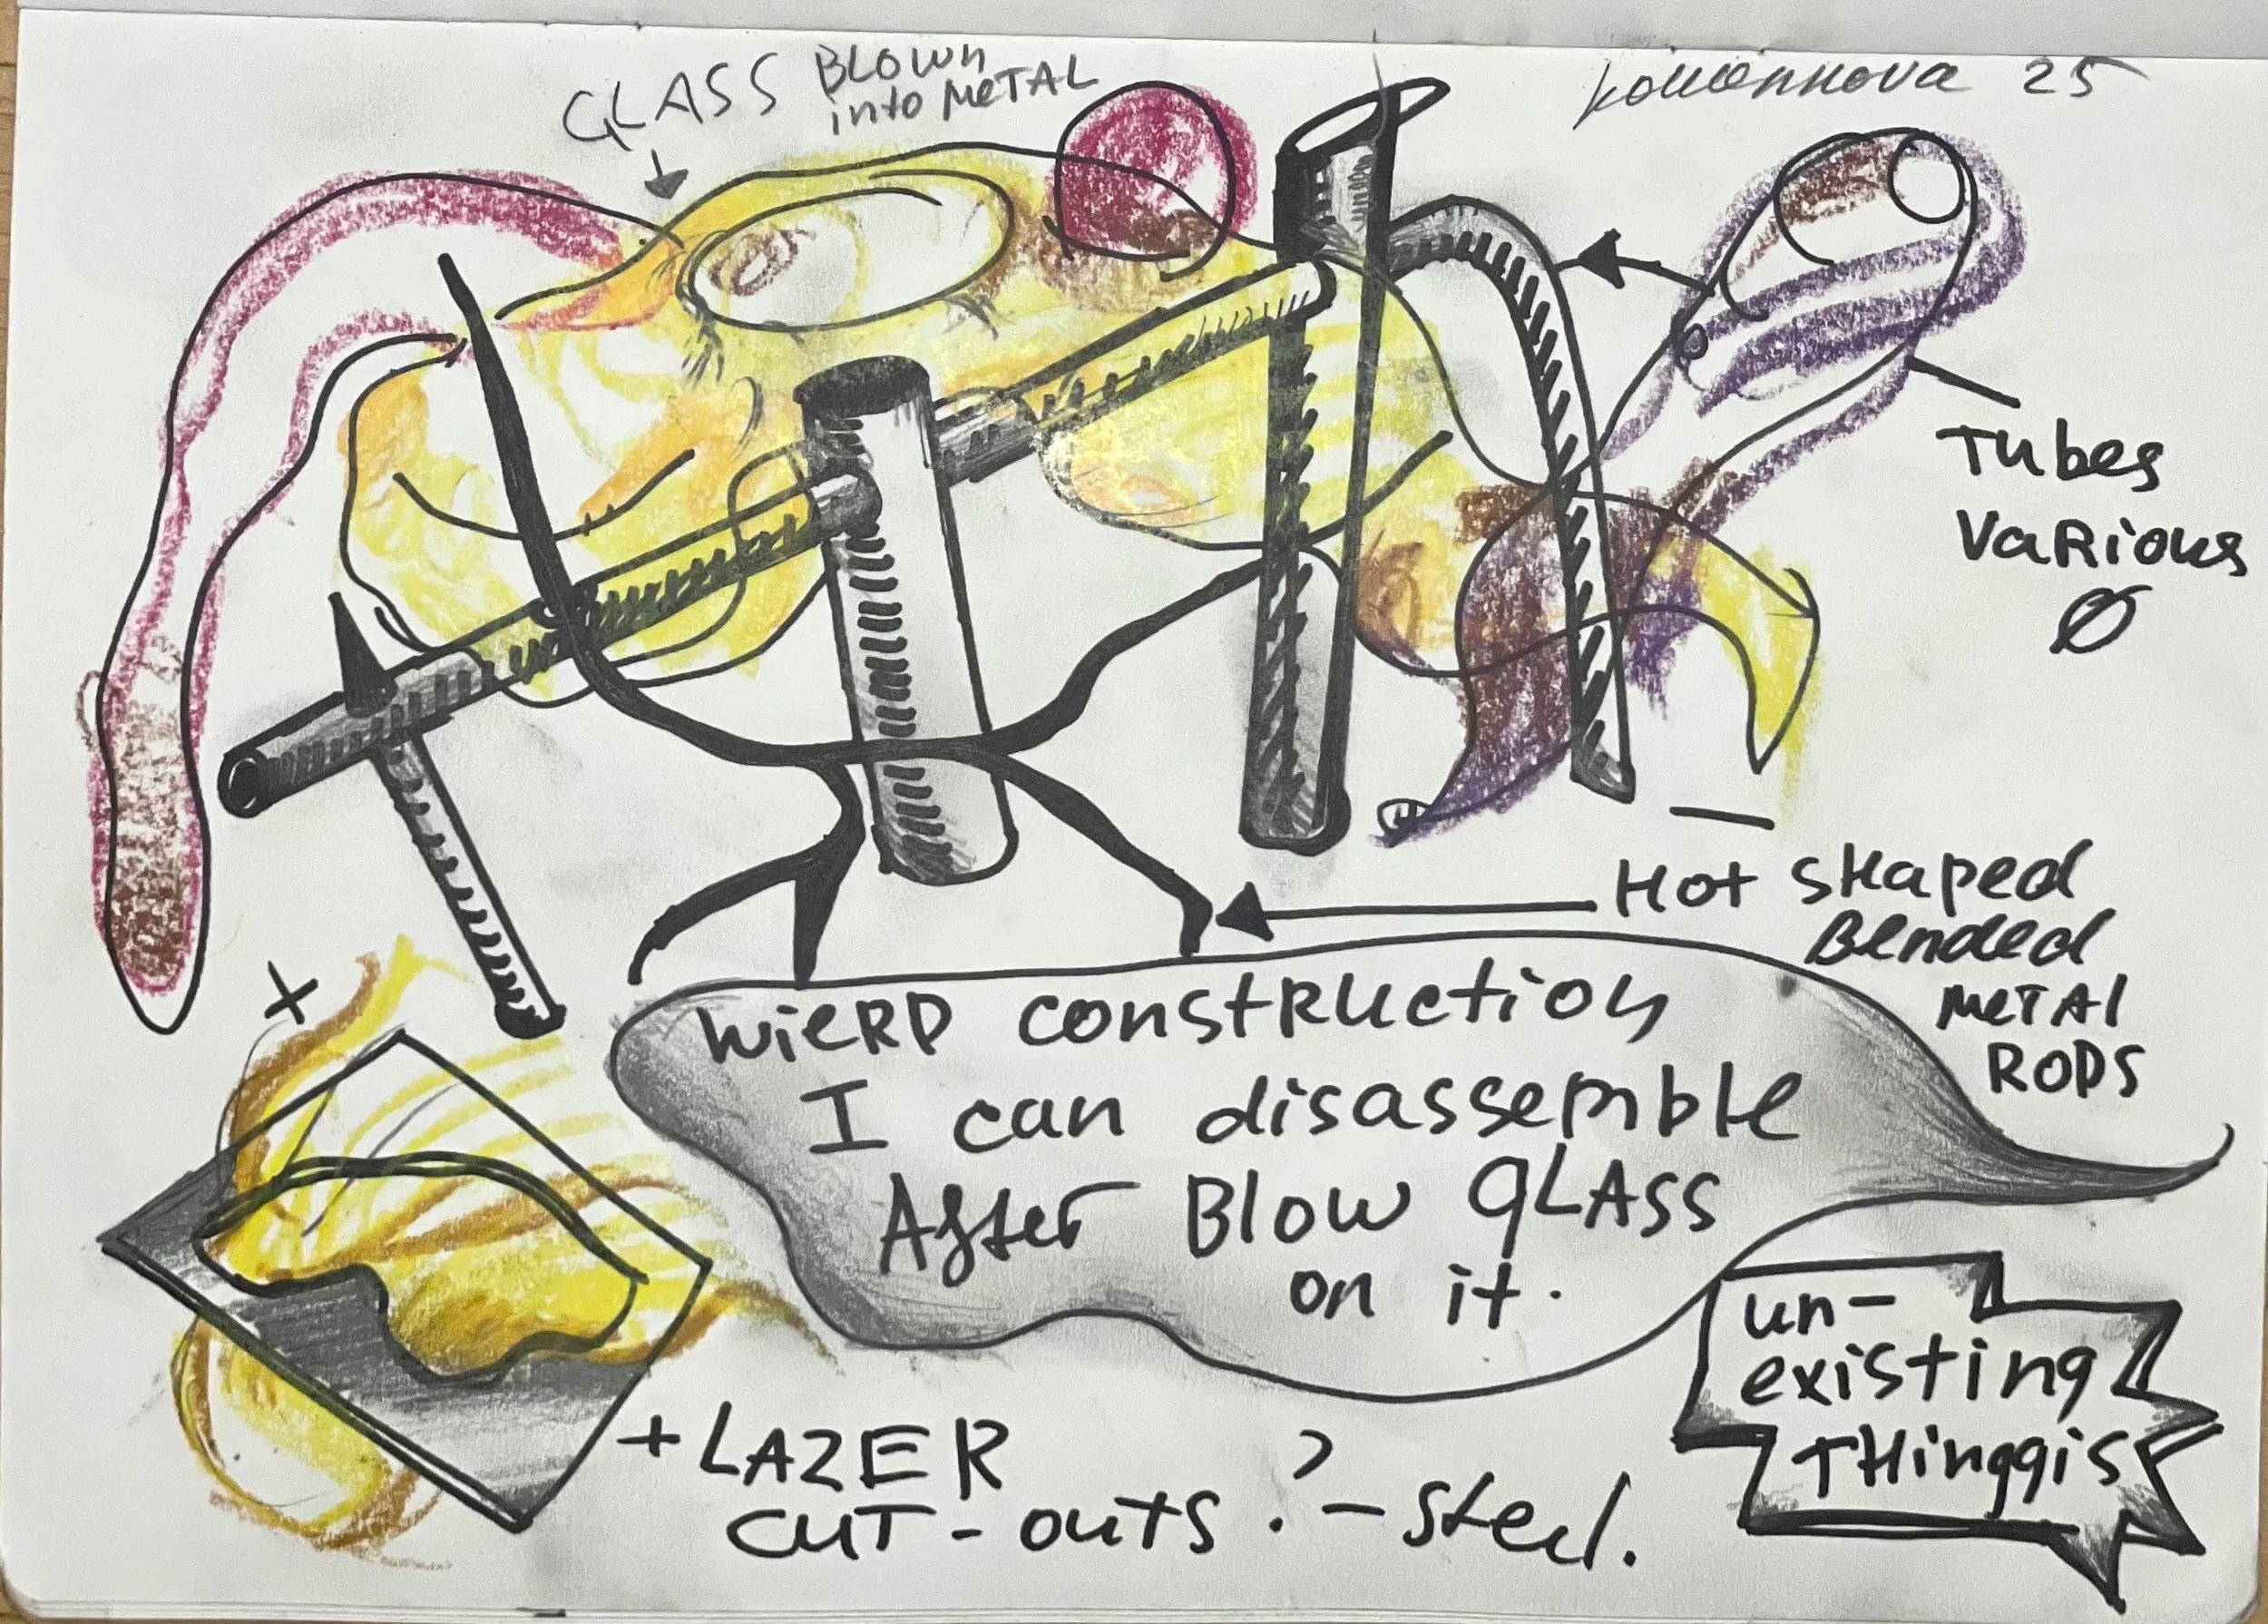 GLASS BLOWN
into METAL
25
Tubes
VaRious
Ø
Hot SHaped
Bended
METAL
RODS
WiERD construction
I can disassemble
After Blow gLASS
on it.
un-
existing
THinggis
+ LAZER
CUT-outs ? - steel.